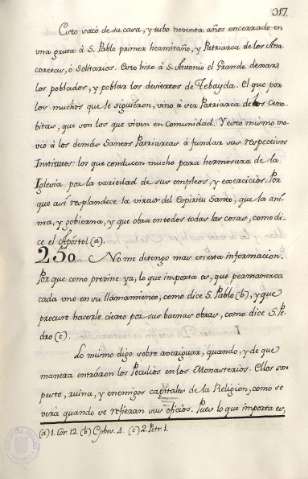 317
Esto sacó de su casa, y tubo noventa años encerrado en
una gruta á S. Pablo primer hermitaño, y Patriarca de los Ana-
coretas, ó Solitarios. Esto hizo á S. Antonio el Grande dexar
los poblados, y poblar los desiertos de Tebayda. El que por
los muchos que le siguieron, vino á ser Patriarca de los Ceno-
bitas, que son los que viven en Comunidad. Y esto mismo mo-
vió á los demás Santos Patriarcas á fundar sus respectivos
Institutos: los que conducen mucho para hermosura de la
Iglesia por la variedad de sus empleos, y exercicios. Por
que asi resplandece la virtud del Espiritu Santo, que la ani-
ma, y gobierna, y que obra en todos todas las cosas, como di-
ce el Apostol (a).
230 No me detengo mas en esta informacion.
Porque como previne ya, lo que importa es, que permanezca
cada uno en su llamamiento, como dice S. Pablo (b), y que
procure hacerle cierto por sus buenas obras, como dice S. Pe-
dro (c).
Lo mismo digo sobre averiguar, quando, y de que
manera entraron los Peculios en los Monasterios. Ellos son
peste, ruina, y enemigos capitales de la Religion, como se
verá quando se refieran sus oficios. Pues lo que importa es,
(a) 1. Cor. 12. (b) Ephes. 4. (c) 2. Petr. 1.